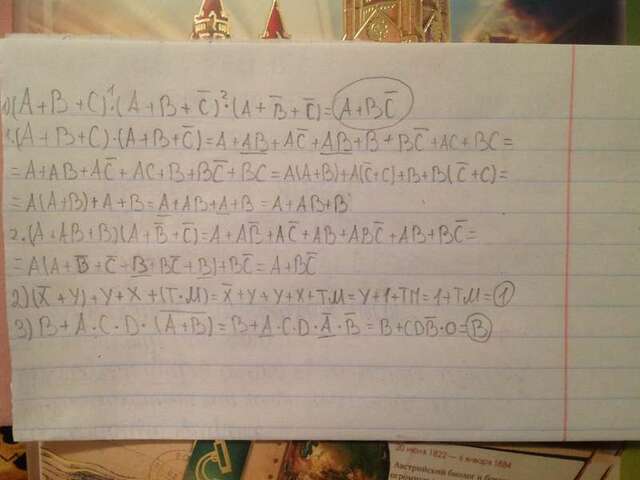 1)(A+B+C)¹·(A+B+C̅)²·(A+B̅+C̅)=A+BC̅
1.(A+B+C)·(A+B+C̅)=A+AB+AC̅+AB+B+BC̅+AC+BC=
=A+AB+AC̅+AC+B+BC̅+BC=A(A+B)+A(C̅+C)+B+B(C̅+C)=
=A(A+B)+A+B=A+AB+A+B=A+AB+B
2.(A+AB+B)(A+B̅+C̅)=A+AB̅+AC̅+AB+ABC̅+AB+BC̅=
=A(A+B̅+C̅+B+BC̅+B)+BC̅=A+BC̅
2)(X̅+Y)+Y+X+(T·M)=X̅+Y+Y+X+TM=Y+1+TM=1+TM=1
3)B+A·C·D·(A̅+̅B̅)=B+A·C·D·A̅·B̅=B+CDB̅·0=B
20 июля 1822 — 6 января 1884
Австрийский биолог и